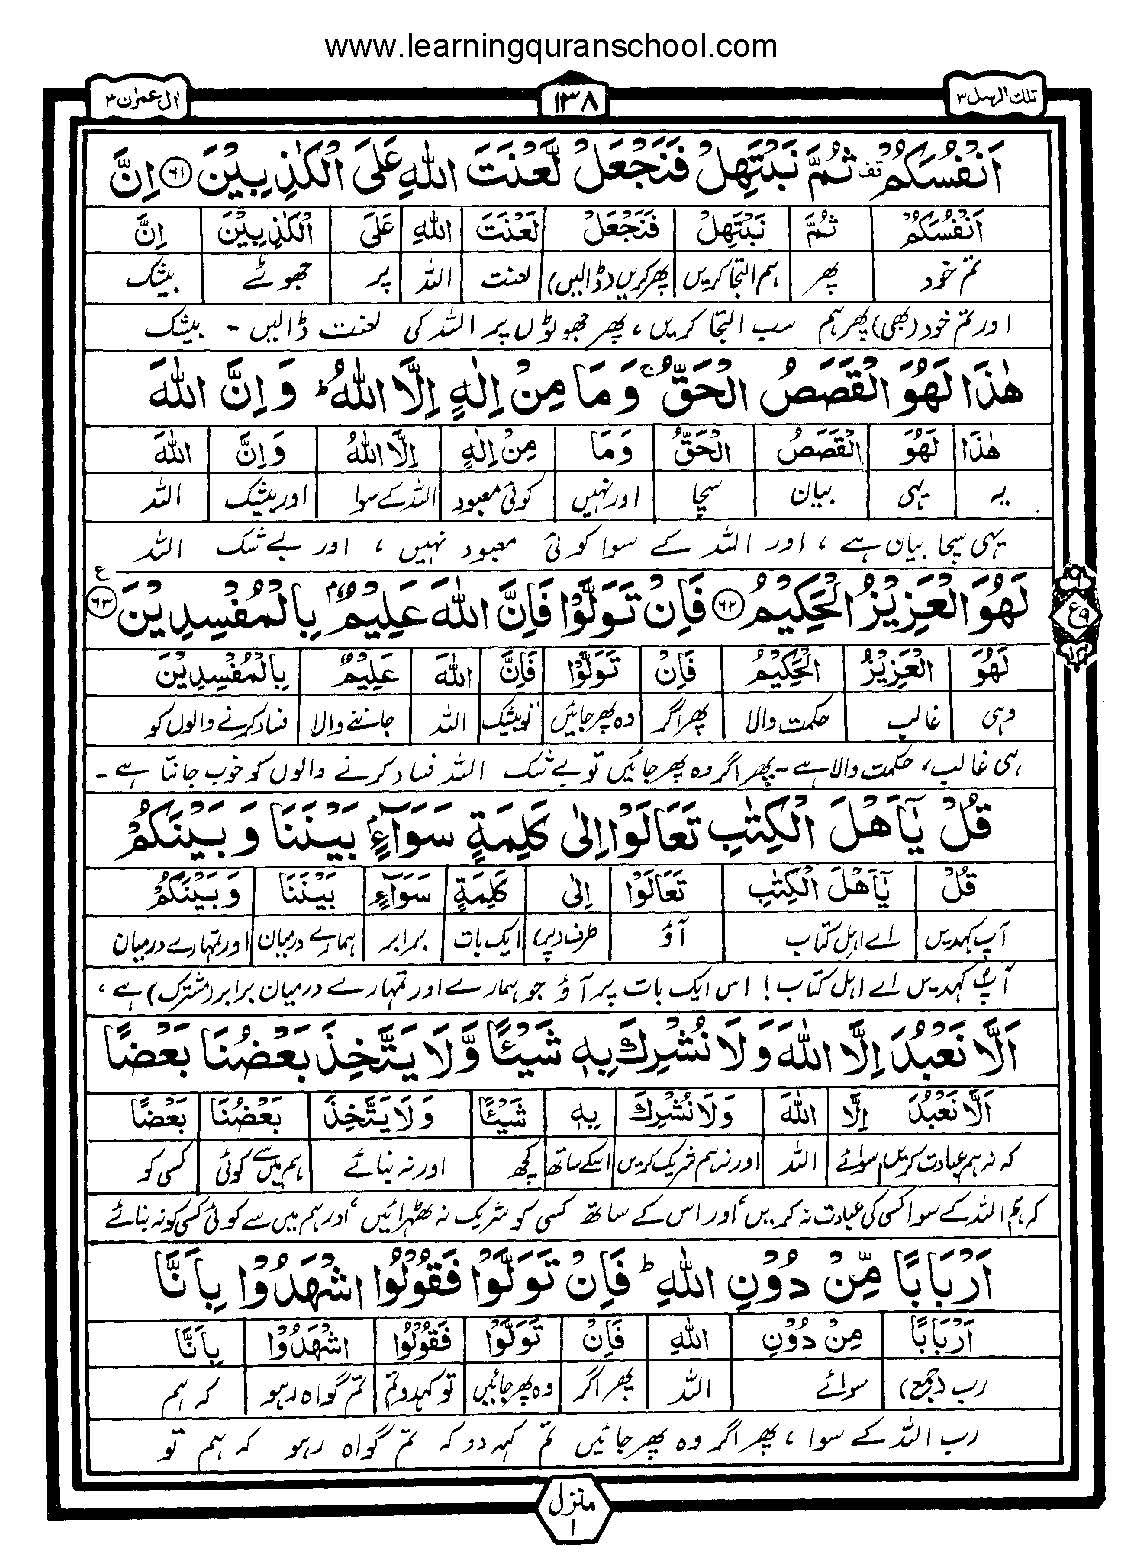 www.learningquranschool.com
تلك الرسل ٣ ١٣٨ ال عمران ٣
اَنْفُسَكُمْ قف ثُمَّ نَبْتَهِلْ فَنَجْعَلْ لَّعْنَتَ اللّٰهِ عَلَى الْكٰذِبِيْنَ ۶۱ اِنَّ
اَنْفُسَكُمْ ثُمَّ نَبْتَهِلْ فَنَجْعَلْ لَعْنَتَ اللّٰهِ عَلَى الْكٰذِبِيْنَ اِنَّ
تم خود پھر ہم التجا کریں پھر کریں (ڈالیں) لعنت اللہ پر جھوٹے بیشک
اور تم خود (بھی) پھر ہم سب التجا کریں، پھر جھوٹوں پر اللہ کی لعنت ڈالیں - بیشک
هٰذَا لَهُوَ الْقَصَصُ الْحَقُّ ۚ وَمَا مِنْ اِلٰهٍ اِلَّا اللّٰهُ ؕ وَاِنَّ اللّٰهَ
هٰذَا لَهُوَ الْقَصَصُ الْحَقُّ وَمَا مِنْ اِلٰهٍ اِلَّا اللّٰهُ وَاِنَّ اللّٰهَ
یہ یہی بیان سچا اور نہیں کوئی معبود اللہ کے سوا اور بیشک اللہ
یہی سچا بیان ہے، اور اللہ کے سوا کوئی معبود نہیں، اور بے شک اللہ
لَهُوَ الْعَزِيْزُ الْحَكِيْمُ ۶۲ فَاِنْ تَوَلَّوْا فَاِنَّ اللّٰهَ عَلِيْمٌۢ بِالْمُفْسِدِيْنَ ۶۳ ع
لَهُوَ الْعَزِيْزُ الْحَكِيْمُ فَاِنْ تَوَلَّوْا فَاِنَّ اللّٰهَ عَلِيْمٌ بِالْمُفْسِدِيْنَ
وہی غالب حکمت والا پھر اگر وہ پھر جائیں تو بیشک اللہ جاننے والا فساد کرنے والوں کو
ہی غالب، حکمت والا ہے - پھر اگر وہ پھر جائیں تو بے شک اللہ فساد کرنے والوں کو خوب جانتا ہے -
قُلْ يٰۤاَهْلَ الْكِتٰبِ تَعَالَوْا اِلٰى كَلِمَةٍ سَوَآءٍۢ بَيْنَنَا وَبَيْنَكُمْ
قُلْ يٰۤاَهْلَ الْكِتٰبِ تَعَالَوْا اِلٰى كَلِمَةٍ سَوَآءٍ بَيْنَنَا وَبَيْنَكُمْ
آپ کہدیں اے اہل کتاب آؤ طرف (پر) ایک بات برابر ہمارے درمیان اور تمہارے درمیان
آپ کہدیں اے اہل کتاب! اس ایک بات پر آؤ جو ہمارے اور تمہارے درمیان برابر (مشترک) ہے،
اَلَّا نَعْبُدَ اِلَّا اللّٰهَ وَلَا نُشْرِكَ بِهٖ شَيْـًٔا وَّلَا يَتَّخِذَ بَعْضُنَا بَعْضًا
اَلَّا نَعْبُدَ اِلَّا اللّٰهَ وَلَا نُشْرِكَ بِهٖ شَيْئًا وَلَا يَتَّخِذَ بَعْضُنَا بَعْضًا
کہ نہ ہم عبادت کریں سوائے اللہ اور نہ ہم شریک کریں اسکے ساتھ کچھ اور نہ بنائے ہم میں سے کوئی کسی کو
کہ ہم اللہ کے سوا کسی کی عبادت نہ کریں، اور اس کے ساتھ کسی کو شریک نہ ٹھہرائیں، اور ہم میں سے کوئی کسی کو نہ بنائے
اَرْبَابًا مِّنْ دُوْنِ اللّٰهِ ؕ فَاِنْ تَوَلَّوْا فَقُوْلُوا اشْهَدُوْا بِاَنَّا
اَرْبَابًا مِنْ دُوْنِ اللّٰهِ فَاِنْ تَوَلَّوْا فَقُوْلُوا اشْهَدُوْا بِاَنَّا
رب (جمع) سوائے اللہ پھر اگر وہ پھر جائیں تو کہدو تم تم گواہ رہو کہ ہم
رب اللہ کے سوا، پھر اگر وہ پھر جائیں تم کہہ دو کہ تم گواہ رہو کہ ہم تو
منزل
۱